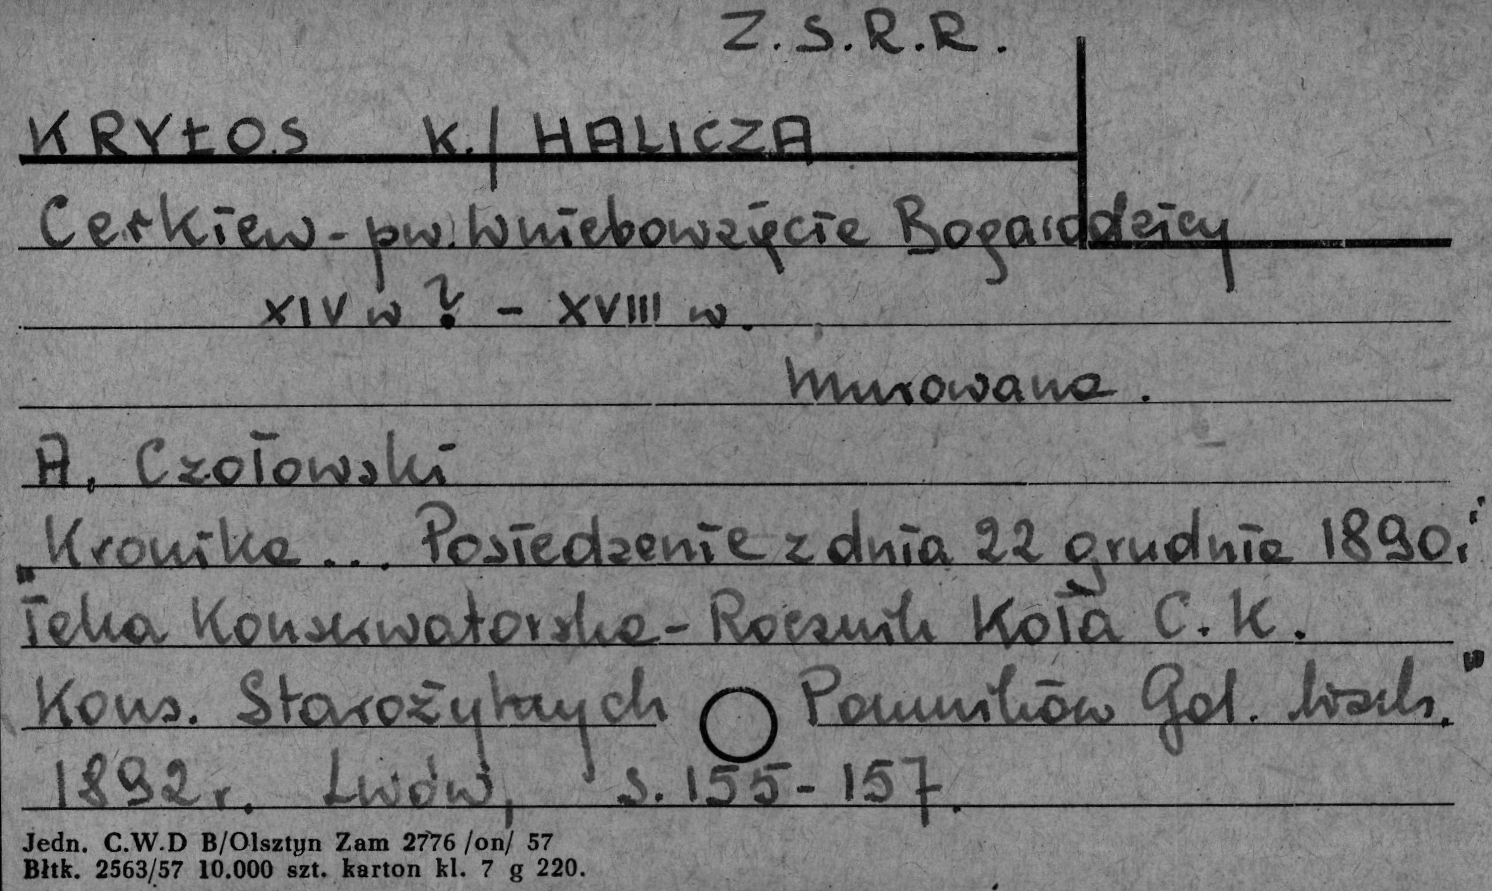 Z.S.R.R.
KRYŁOS K./HALICZA
Cerkiew - pw. Wniebowzięcie Bogarodzicy
XIV w ? - XVIII w.
Murowana.
A. Czołowski
"Kronika... Posiedzenie z dnia 22 grudnia 1890."
Teka Konserwatorska - Rocznik Koła C.K.
Kons. Starożytnych Pomników Gal. Wsch."
1892 r. Lwów, s. 155-157.
Jedn. C.W.D B/Olsztyn Zam 2776 /on/ 57
Błtk. 2563/57 10.000 szt. karton kl. 7 g 220.